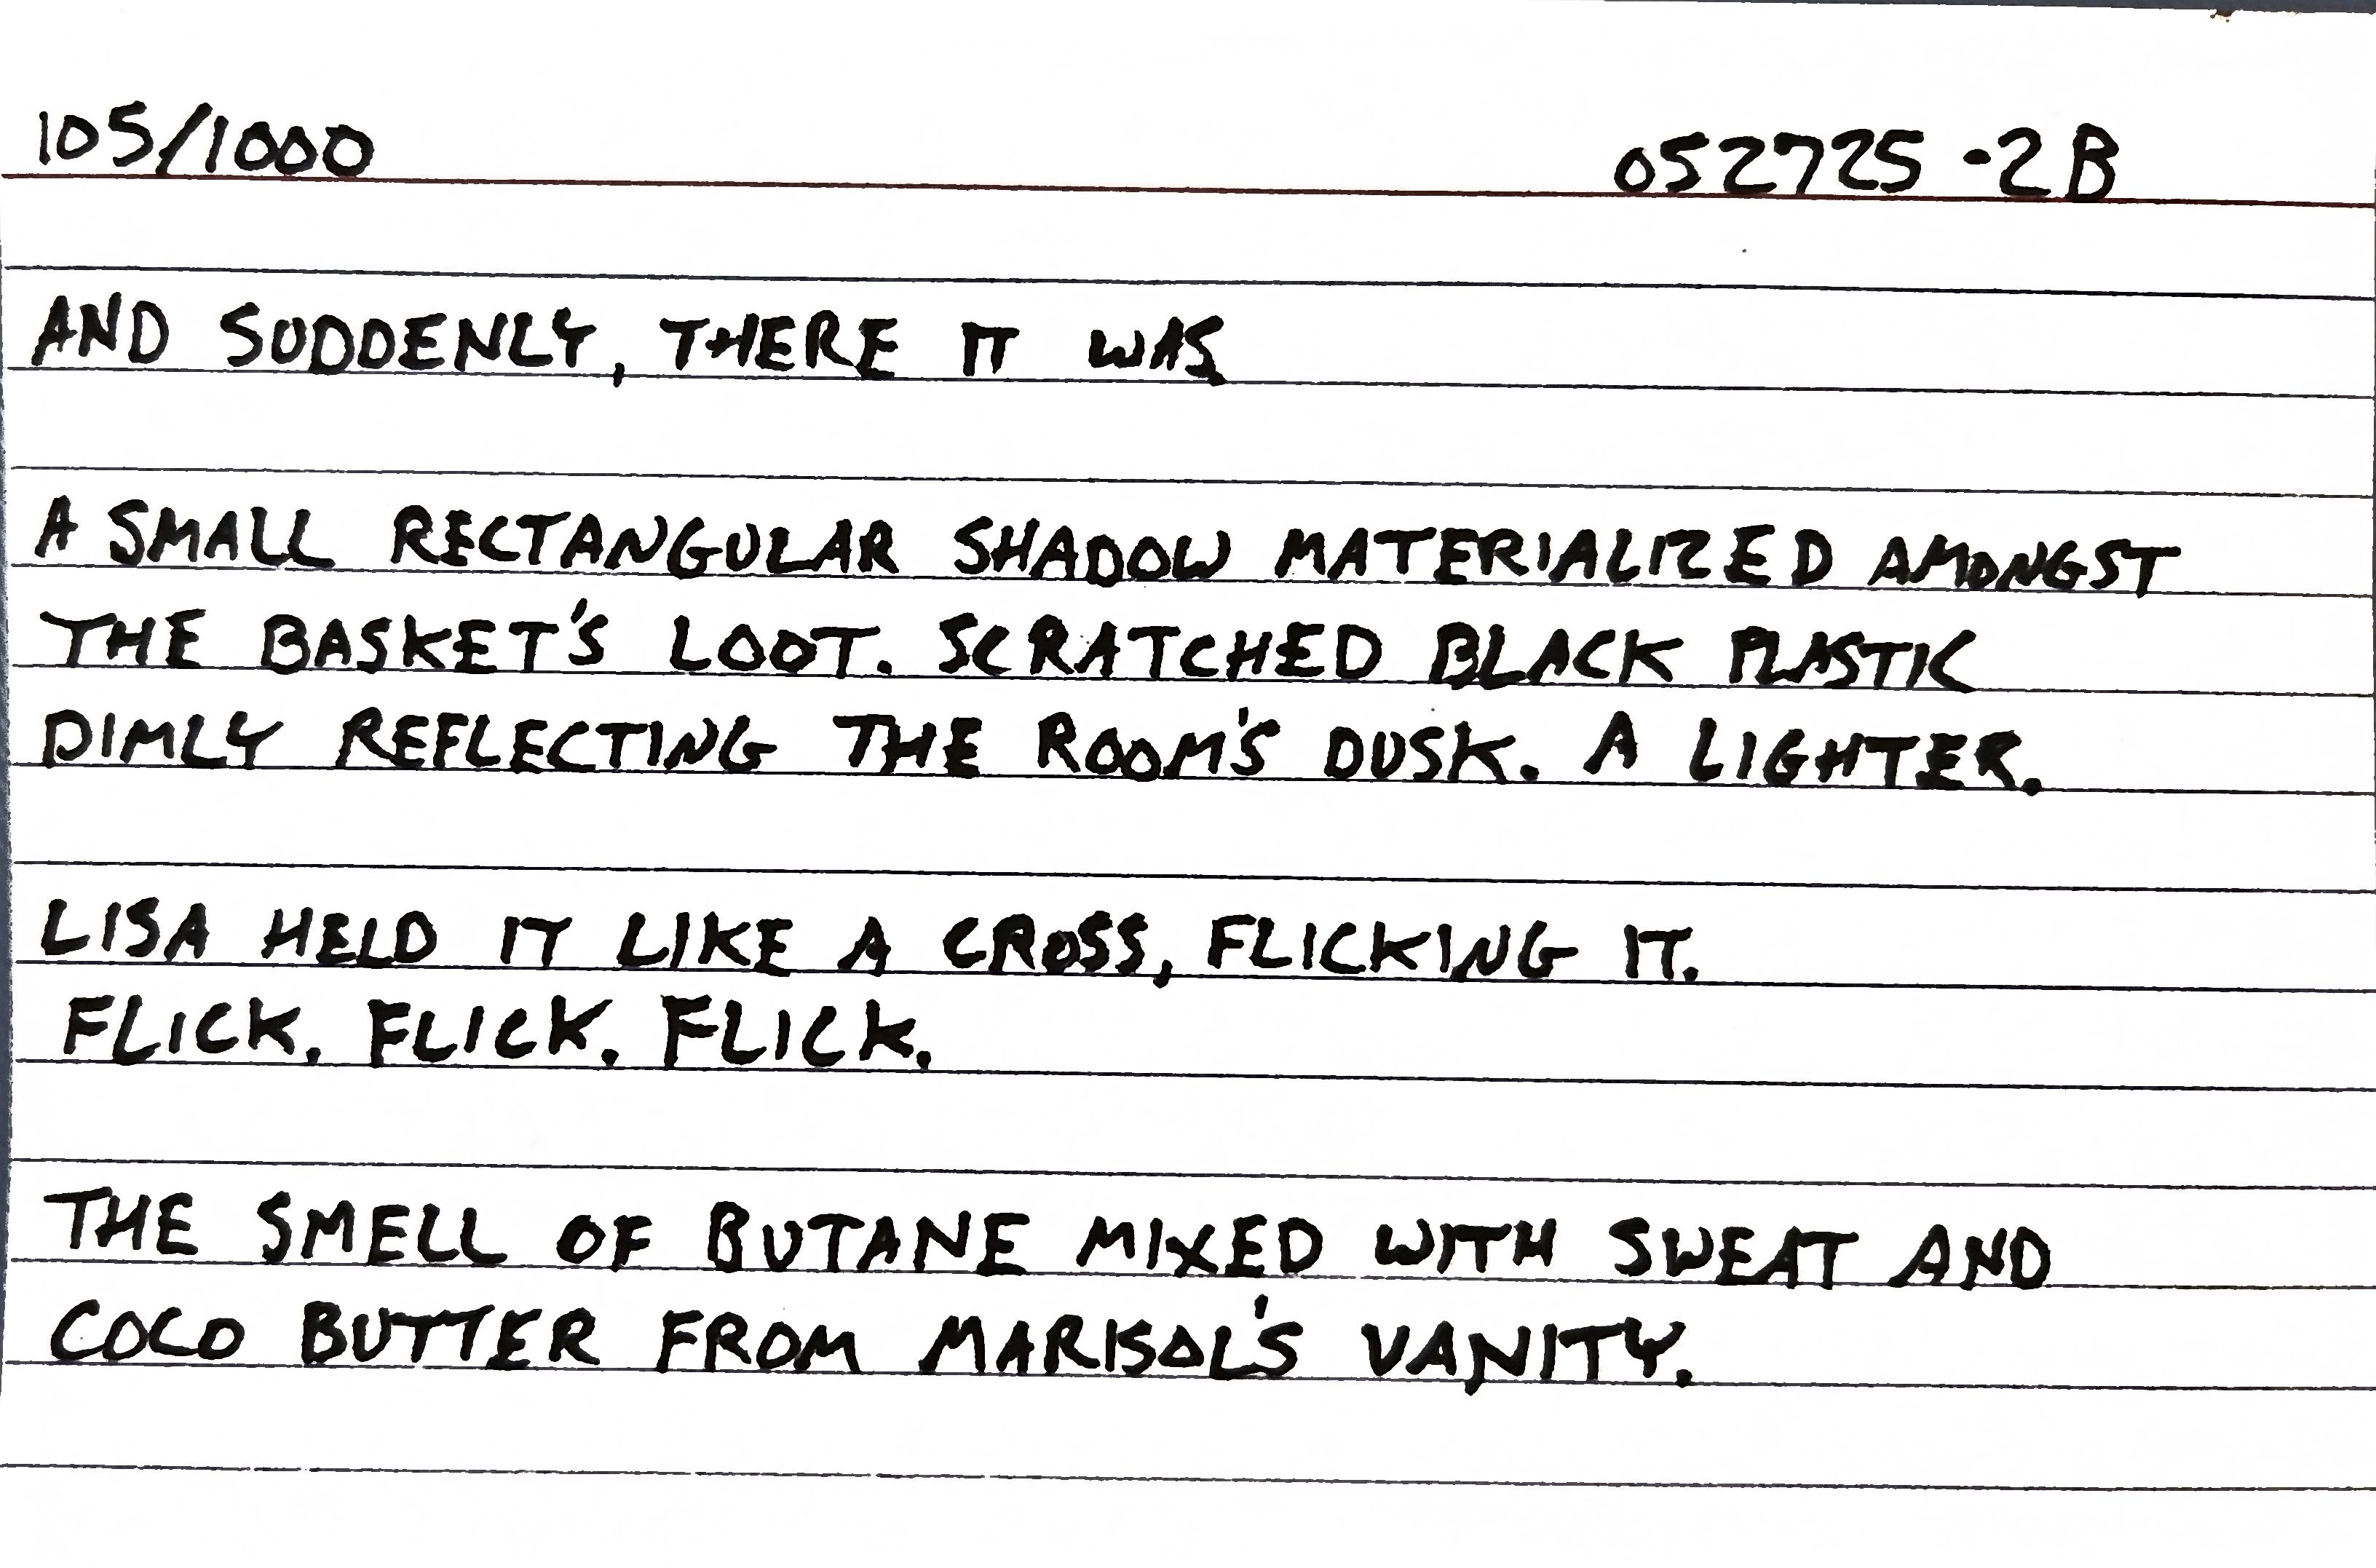 105/1000
052725-2B
AND SUDDENLY, THERE IT WAS
A SMALL RECTANGULAR SHADOW MATERIALIZED AMONGST
THE BASKET'S LOOT. SCRATCHED BLACK PLASTIC
DIMLY REFLECTING THE ROOM'S DUSK. A LIGHTER.
LISA HELD IT LIKE A CROSS, FLICKING IT.
FLICK. FLICK. FLICK.
THE SMELL OF BUTANE MIXED WITH SWEAT AND
COCO BUTTER FROM MARISOL'S VANITY.